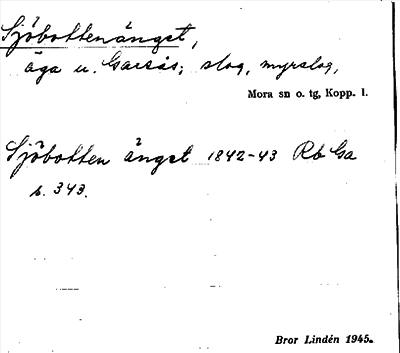 Sjöbottenänget,
äga u. Garsås; slog, myrslog,
Mora sn o. tg, Kopp. l.
Sjöbotten änget 1842-43 Rb Ga
s. 343.
Bror Lindén 1945.